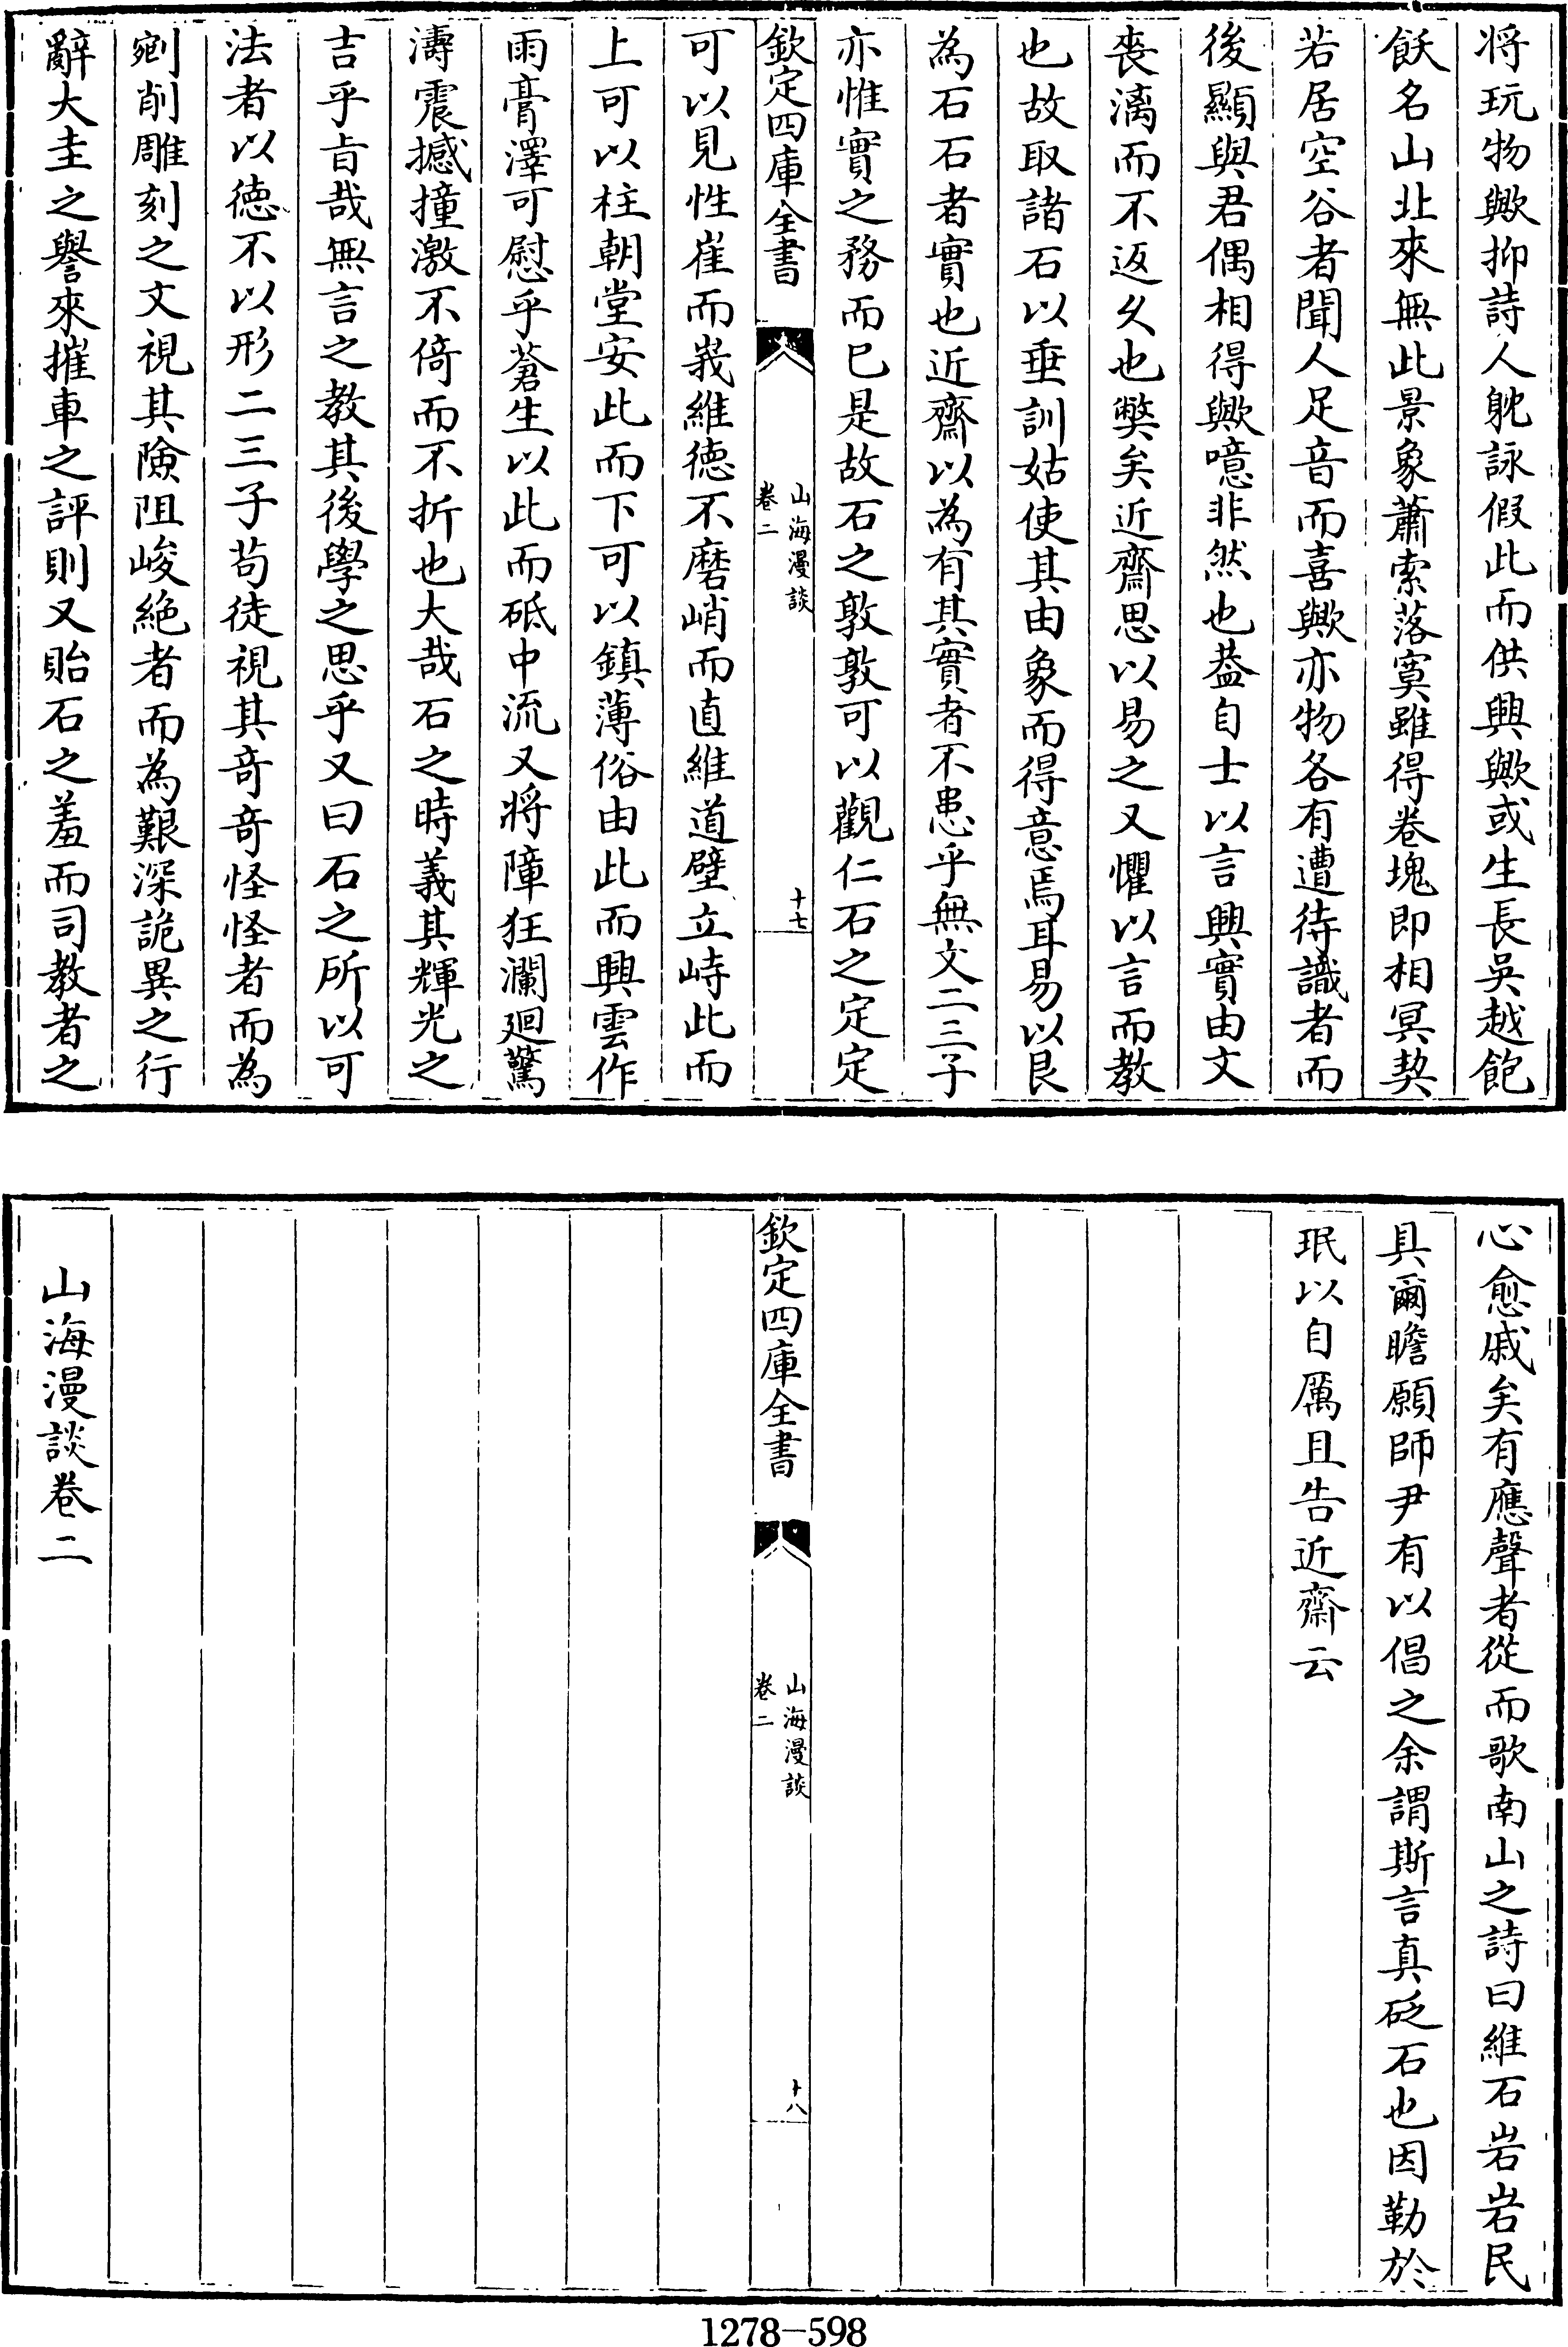 将玩物歟抑詩人躭詠假此而供興歟或生長吳越飽
飫名山北來無此景象蕭索落寞雖得卷塊即相冥契
若居空谷者聞人足音而喜歟亦物各有遭待識者而
後顯與君偶相得歟噫非然也葢自士以言興實由文
丧漓而不返乆也弊矣近齋思以易之又懼以言而教
也故取諸石以垂訓姑使其由象而得意焉耳易以艮
為石石者實也近齋以為有其實者不患乎無文二三子
亦惟實之務而已是故石之敦敦可以觀仁石之定定
欽定四庫全書
山海漫談
卷二
十七
可以見性崔而峩維徳不磨峭而直維道壁立峙此而
上可以柱朝堂安此而下可以鎮薄俗由此而興雲作
雨膏澤可慰乎蒼生以此而砥中流又將障狂瀾廻驚
濤震撼撞激不倚而不折也大哉石之時義其輝光之
吉乎㫖哉無言之教其後學之思乎又曰石之所以可
法者以徳不以形二三子苟徒視其竒竒怪怪者而為
剜削雕刻之文視其險阻峻絶者而為艱深詭異之行
辭大圭之譽來摧車之評則又貽石之羞而司教者之
心愈戚矣有應聲者從而歌南山之詩曰維石岩岩民
具爾瞻願師尹有以倡之余謂斯言真砭石也因勒於
珉以自厲且告近齋云
欽定四庫全書
山海漫談
卷二
十八
山海漫談卷二
1278-598